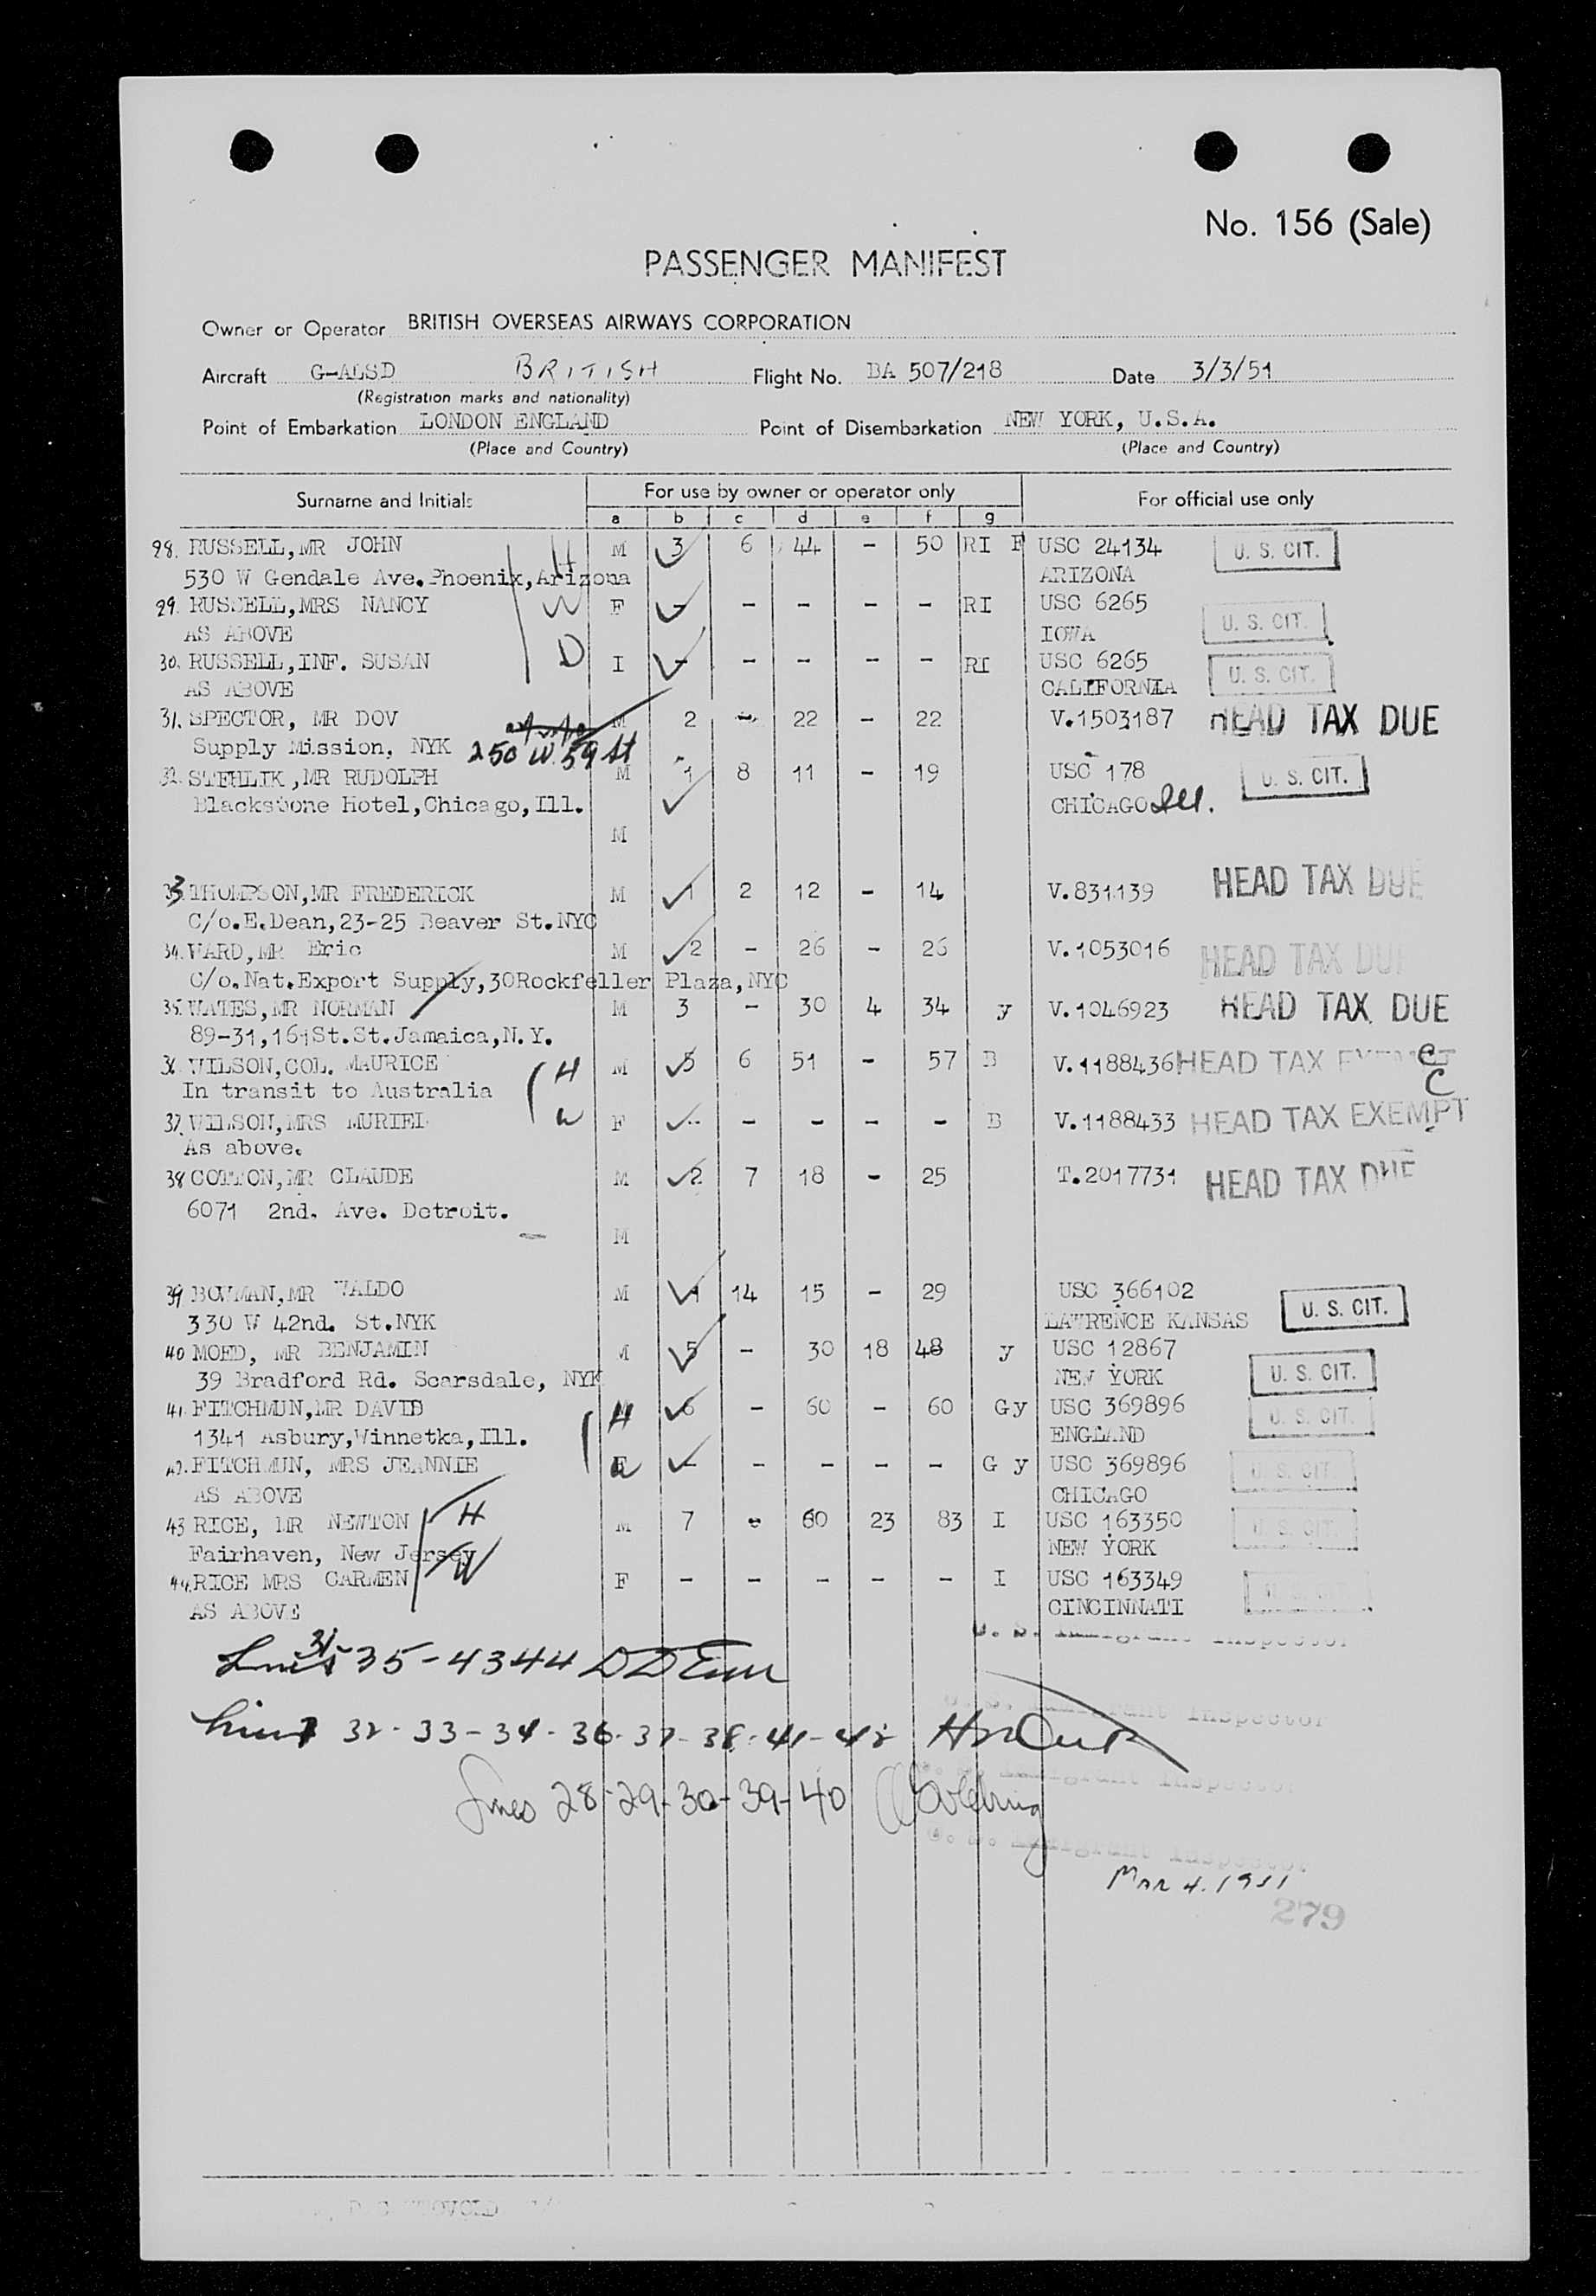 No. 156 (Sale)
PASSENGER MANIFEST
Owner or Operator BRITISH OVERSEAS AIRWAYS CORPORATION
Aircraft G-ALSD BRITISH Flight No. BA 507/218 Date 3/3/51
(Registration marks and nationality)
Point of Embarkation LONDON ENGLAND Point of Disembarkation NEW YORK, U.S.A.
(Place and Country) (Place and Country)
Surname and Initials For use by owner or operator only For official use only
a b c d e f g
28. RUSSELL,MR JOHN H M 3 6 44 - 50 RI F USC 24134 U. S. CIT.
530 W Gendale Ave.Phoenix,Arizona ARIZONA
29. RUSSELL,MRS NANCY W F - - - - - RI USC 6265 U. S. CIT.
AS ABOVE IOWA
30. RUSSELL,INF. SUSAN D I - - - - - RI USC 6265 U. S. CIT.
AS ABOVE CALIFORNIA
31. SPECTOR, MR DOV M 2 - 22 - 22 V.1503187 HEAD TAX DUE
Supply Mission, NYK 250 W. 59 St
32. STEHLIK,MR RUDOLPH M 1 8 11 - 19 USC 178 U. S. CIT.
Blackstone Hotel,Chicago,Ill. CHICAGO Ill.
M
33. THOMPSON,MR FREDERICK M 1 2 12 - 14 V.831139 HEAD TAX DUE
C/o.E.Dean,23-25 Beaver St.NYC
34. WARD,MR Eric M 2 - 26 - 26 V.1053016 HEAD TAX DUE
C/o.Nat.Export Supply,30Rockfeller Plaza,NYC
35. WATES,MR NORMAN M 3 - 30 4 34 y V.1046923 HEAD TAX DUE
89-31,161St.St.Jamaica,N.Y.
36. WILSON,COL. MAURICE H M 5 6 51 - 57 B V.1188436 HEAD TAX EXEMPT
In transit to Australia C
37. WILSON,MRS MURIEL W F - - - - - B V.1188433 HEAD TAX EXEMPT
As above.
38 COTTON,MR CLAUDE M 2 7 18 - 25 T.2017731 HEAD TAX DUE
6071 2nd. Ave. Detroit.
M
39 BOWMAN,MR WALDO M 1 14 15 - 29 USC 366102
330 W 42nd. St.NYK LAWRENCE KANSAS U. S. CIT.
40 MOED, MR BENJAMIN M 5 - 30 18 48 y USC 12867
39 Bradford Rd. Scarsdale, NYK NEW YORK U. S. CIT.
41. FITCHMUN,MR DAVID H 6 - 60 - 60 Gy USC 369896 U. S. CIT.
1341 Asbury,Winnetka,Ill. ENGLAND
42. FITCHMUN, MRS JEANNIE W F - - - - - G y USC 369896 U. S. CIT.
AS ABOVE CHICAGO
43 RICE, MR NEWTON H M 7 - 60 23 83 I USC 163350 U. S. CIT.
Fairhaven, New Jersey NEW YORK
44. RICE MRS CARMEN W F - - - - - I USC 163349 U. S. CIT.
AS ABOVE CINCINNATI
U. S. Immigrant Inspector
31- 35-43 44
U. S. Immigrant Inspector
Lines 32-33-34-36-37-38-41-42
U. S. Immigrant Inspector
Lines 28-29-30-39-40
U. S. Immigrant Inspector
Mar 4. 1951
279